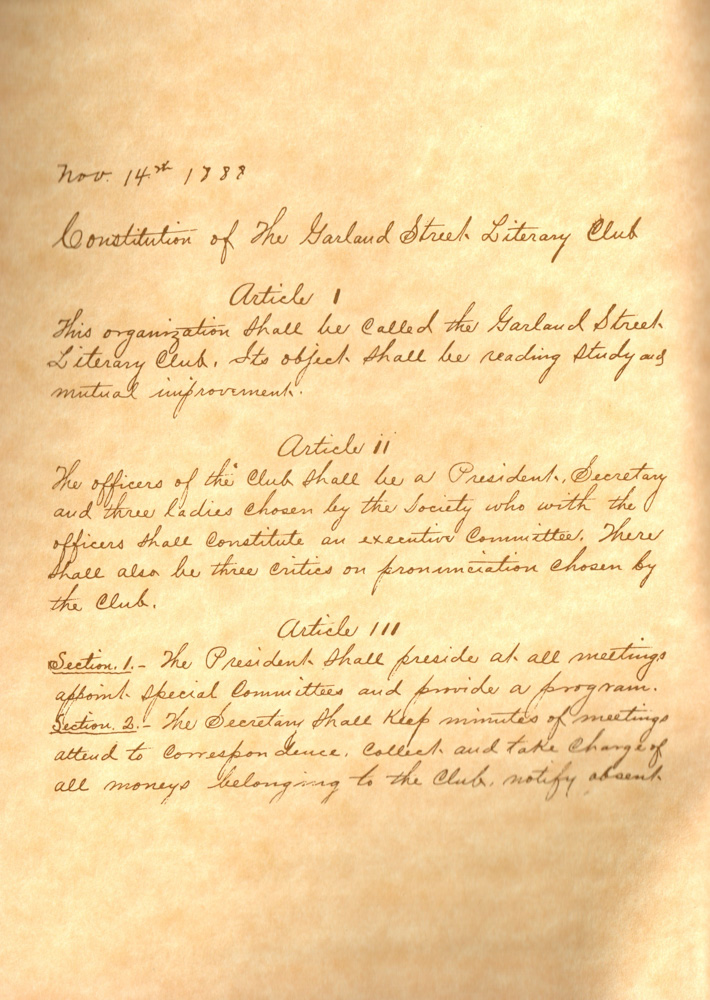 Nov. 14th 1888
Constitution of The Garland Street Literary Club
Article I
This organization shall be called the Garland Street
Literary Club. Its object shall be reading study and
mutual improvement.
Article ii
The officers of the Club shall be a President, Secretary
and three ladies chosen by the Society who with the
officers shall constitute an executive Committee. There
shall also be three critics on pronunciation chosen by
the Club.
Article III
Section. 1. - The President shall preside at all meetings
appoint special Committees and provide a program.
Section. 2. - The Secretary shall Keep minutes of meetings
attend to correspondence, collect and take charge of
all moneys belonging to the Club, notify absent